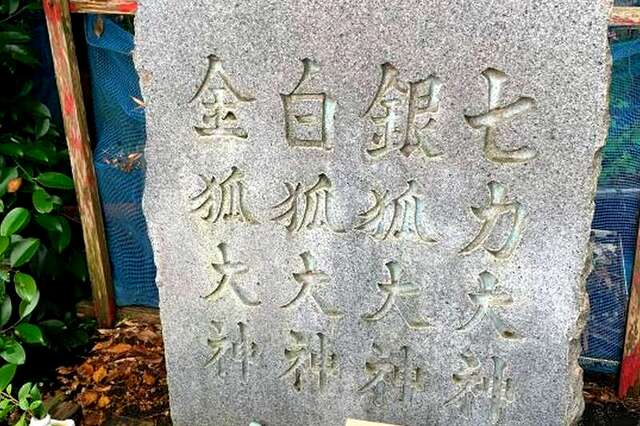 七力大神
銀狐大神
白狐大神
金狐大神